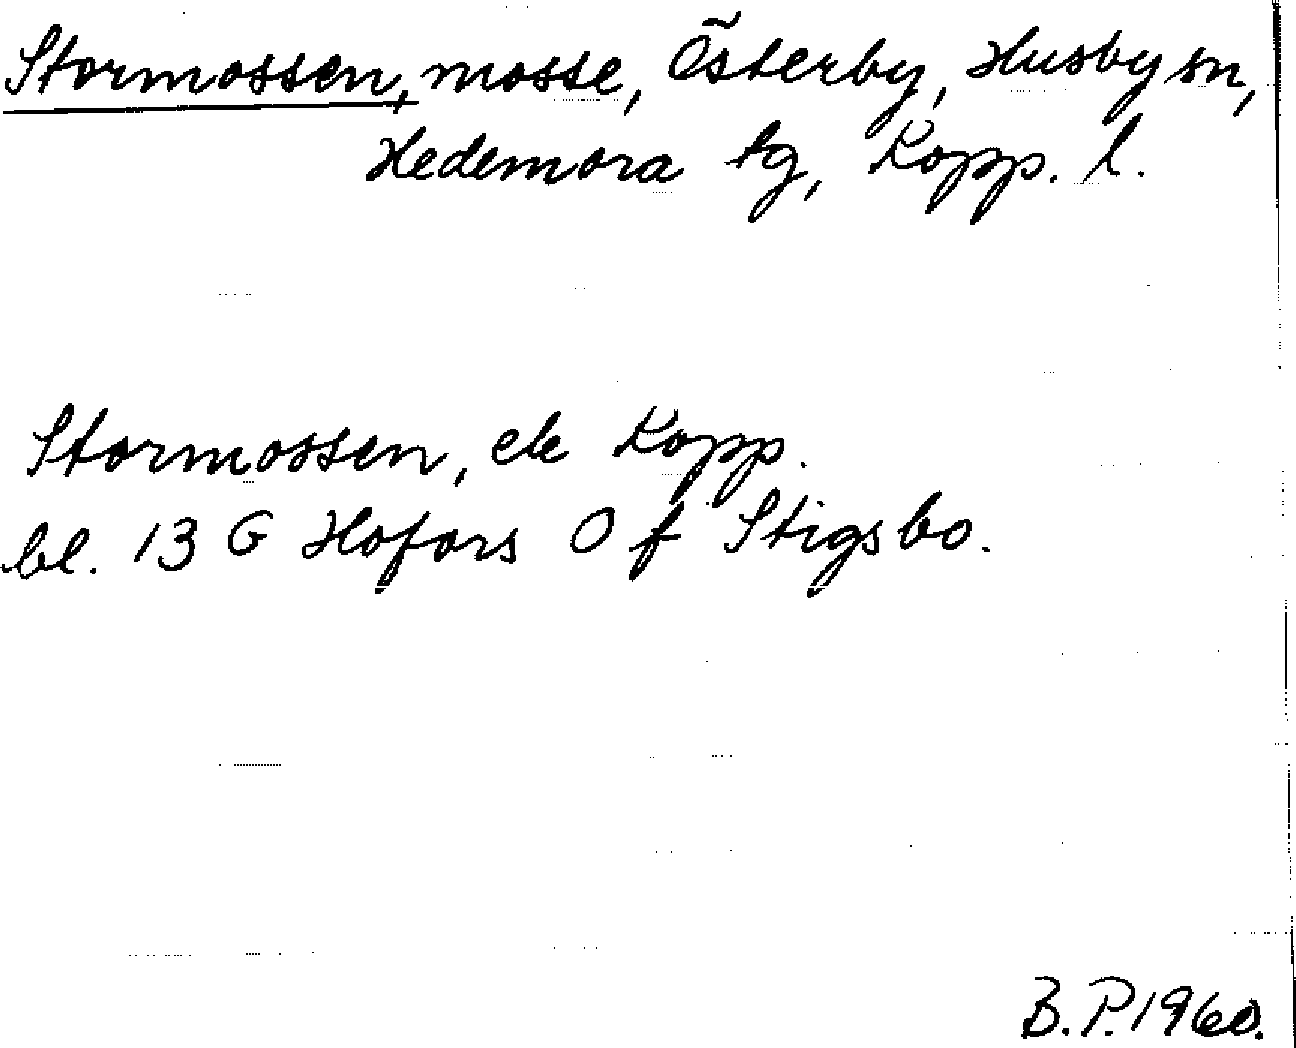 Stormossen, mosse, Österby, Husby sn,
Hedemora tg, Kopp. l.
Stormossen, ek Kopp.
bl. 13 G Hofors O f Stigsbo.
B.P. 1960.